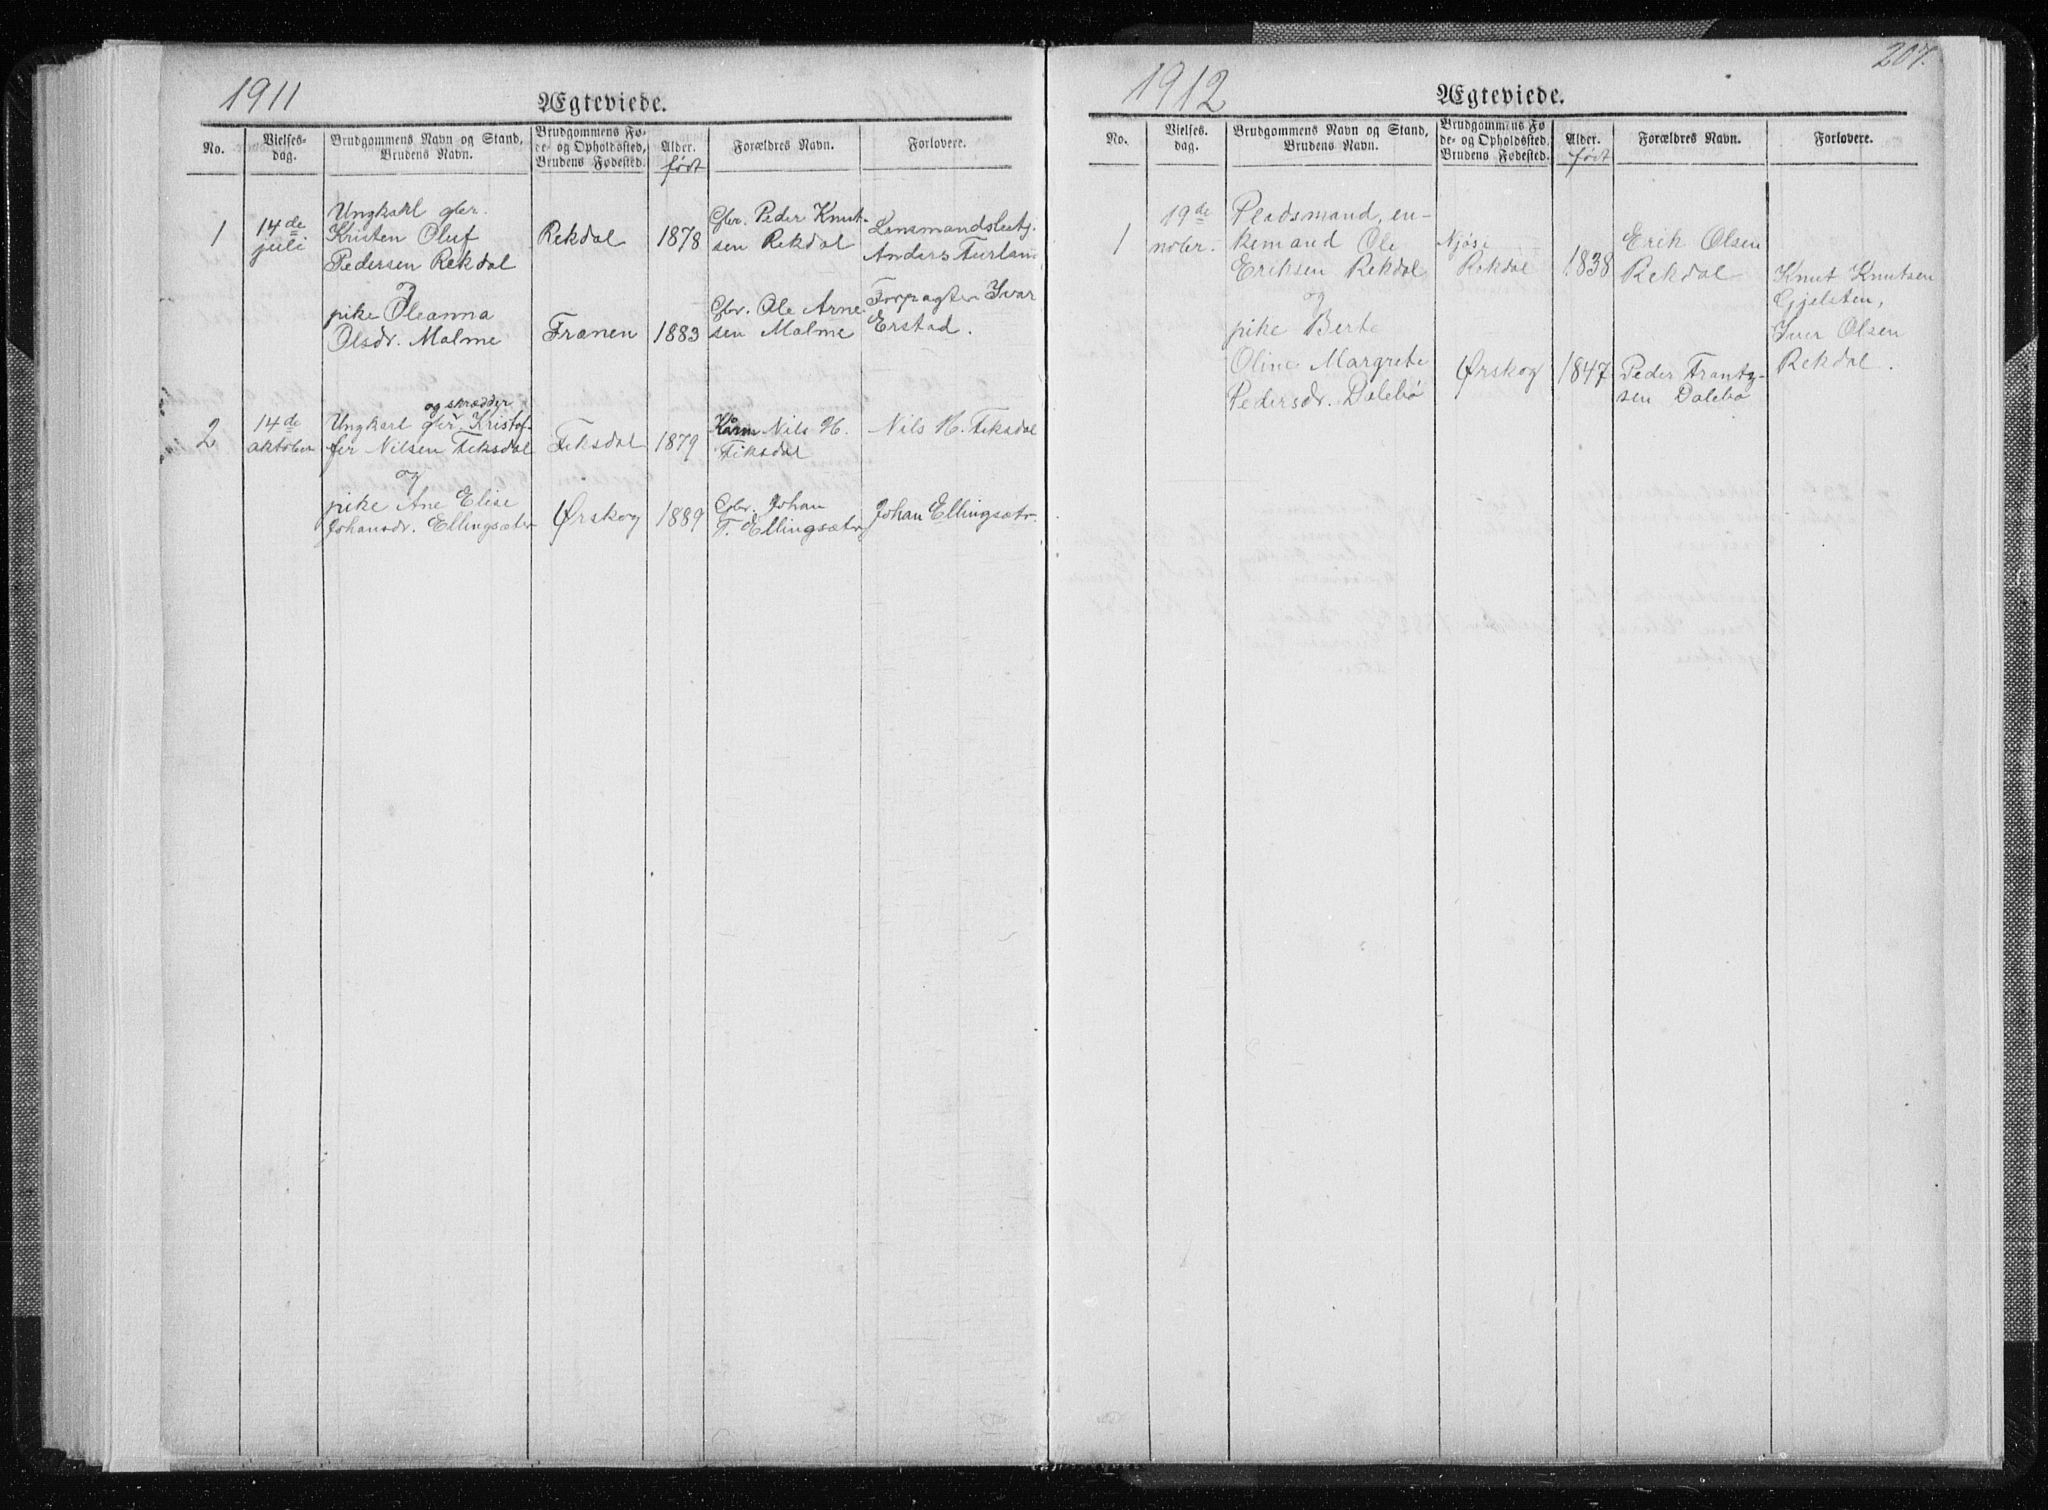 1911
Ægteviede.
No.
Vielses-
dag.
Brudgommens Navn og Stand,
Brudens Navn.
Brudgommens Fø-
de- og Opholdssted,
Brudens Fødested.
Alder.
født
Forældres Navn.
Forlovere.
1
14de
juli
Ungkarl gbr.
Kristen Oluf
Pedersen Rekdal
Rekdal
1878
Gbr. Peder Knut-
sen Rekdal
Lensmandsbetj.
Anders
og
pike Oleanna
Olsdr. Malme
Frænen
1883
Gbr. Ole Arne
sen Malme
Forpagter Ivar
Erstad.
2
14de
oktober
og skrædder
Ungkarl gbr. Kristof-
fer Nilsen Fiksdal
Fiksdal
1879
Nils H.
Fiksdal
Nils H. Fiksdal
og
pike Ane Elise
Johansdr. Ellingsæter
Ørskog
1889
Gbr. Johan
T. Ellingsætr
Johan Ellingsætr
207.
1912
Ægteviede.
No.
Vielses-
dag.
Brudgommens Navn og Stand,
Brudens Navn.
Brudgommens Fø
de- og Opholdssted,
Brudens Fødested.
Alder.
født
Forældres Navn.
Forlovere.
1
19de
nobr.
Pladsmand, en-
kemand Ole
Eriksen Rekdal
Njøsi
Rekdal
1838
Erik Olsen
Rekdal
Knut Knutsen
Gjelsten,
Iver Olsen
Rekdal.
og
pike Berte
Oline Margrete
Pedersdr. Dalebø
Ørskog
1847
Peder Frantz-
sen Dalebø